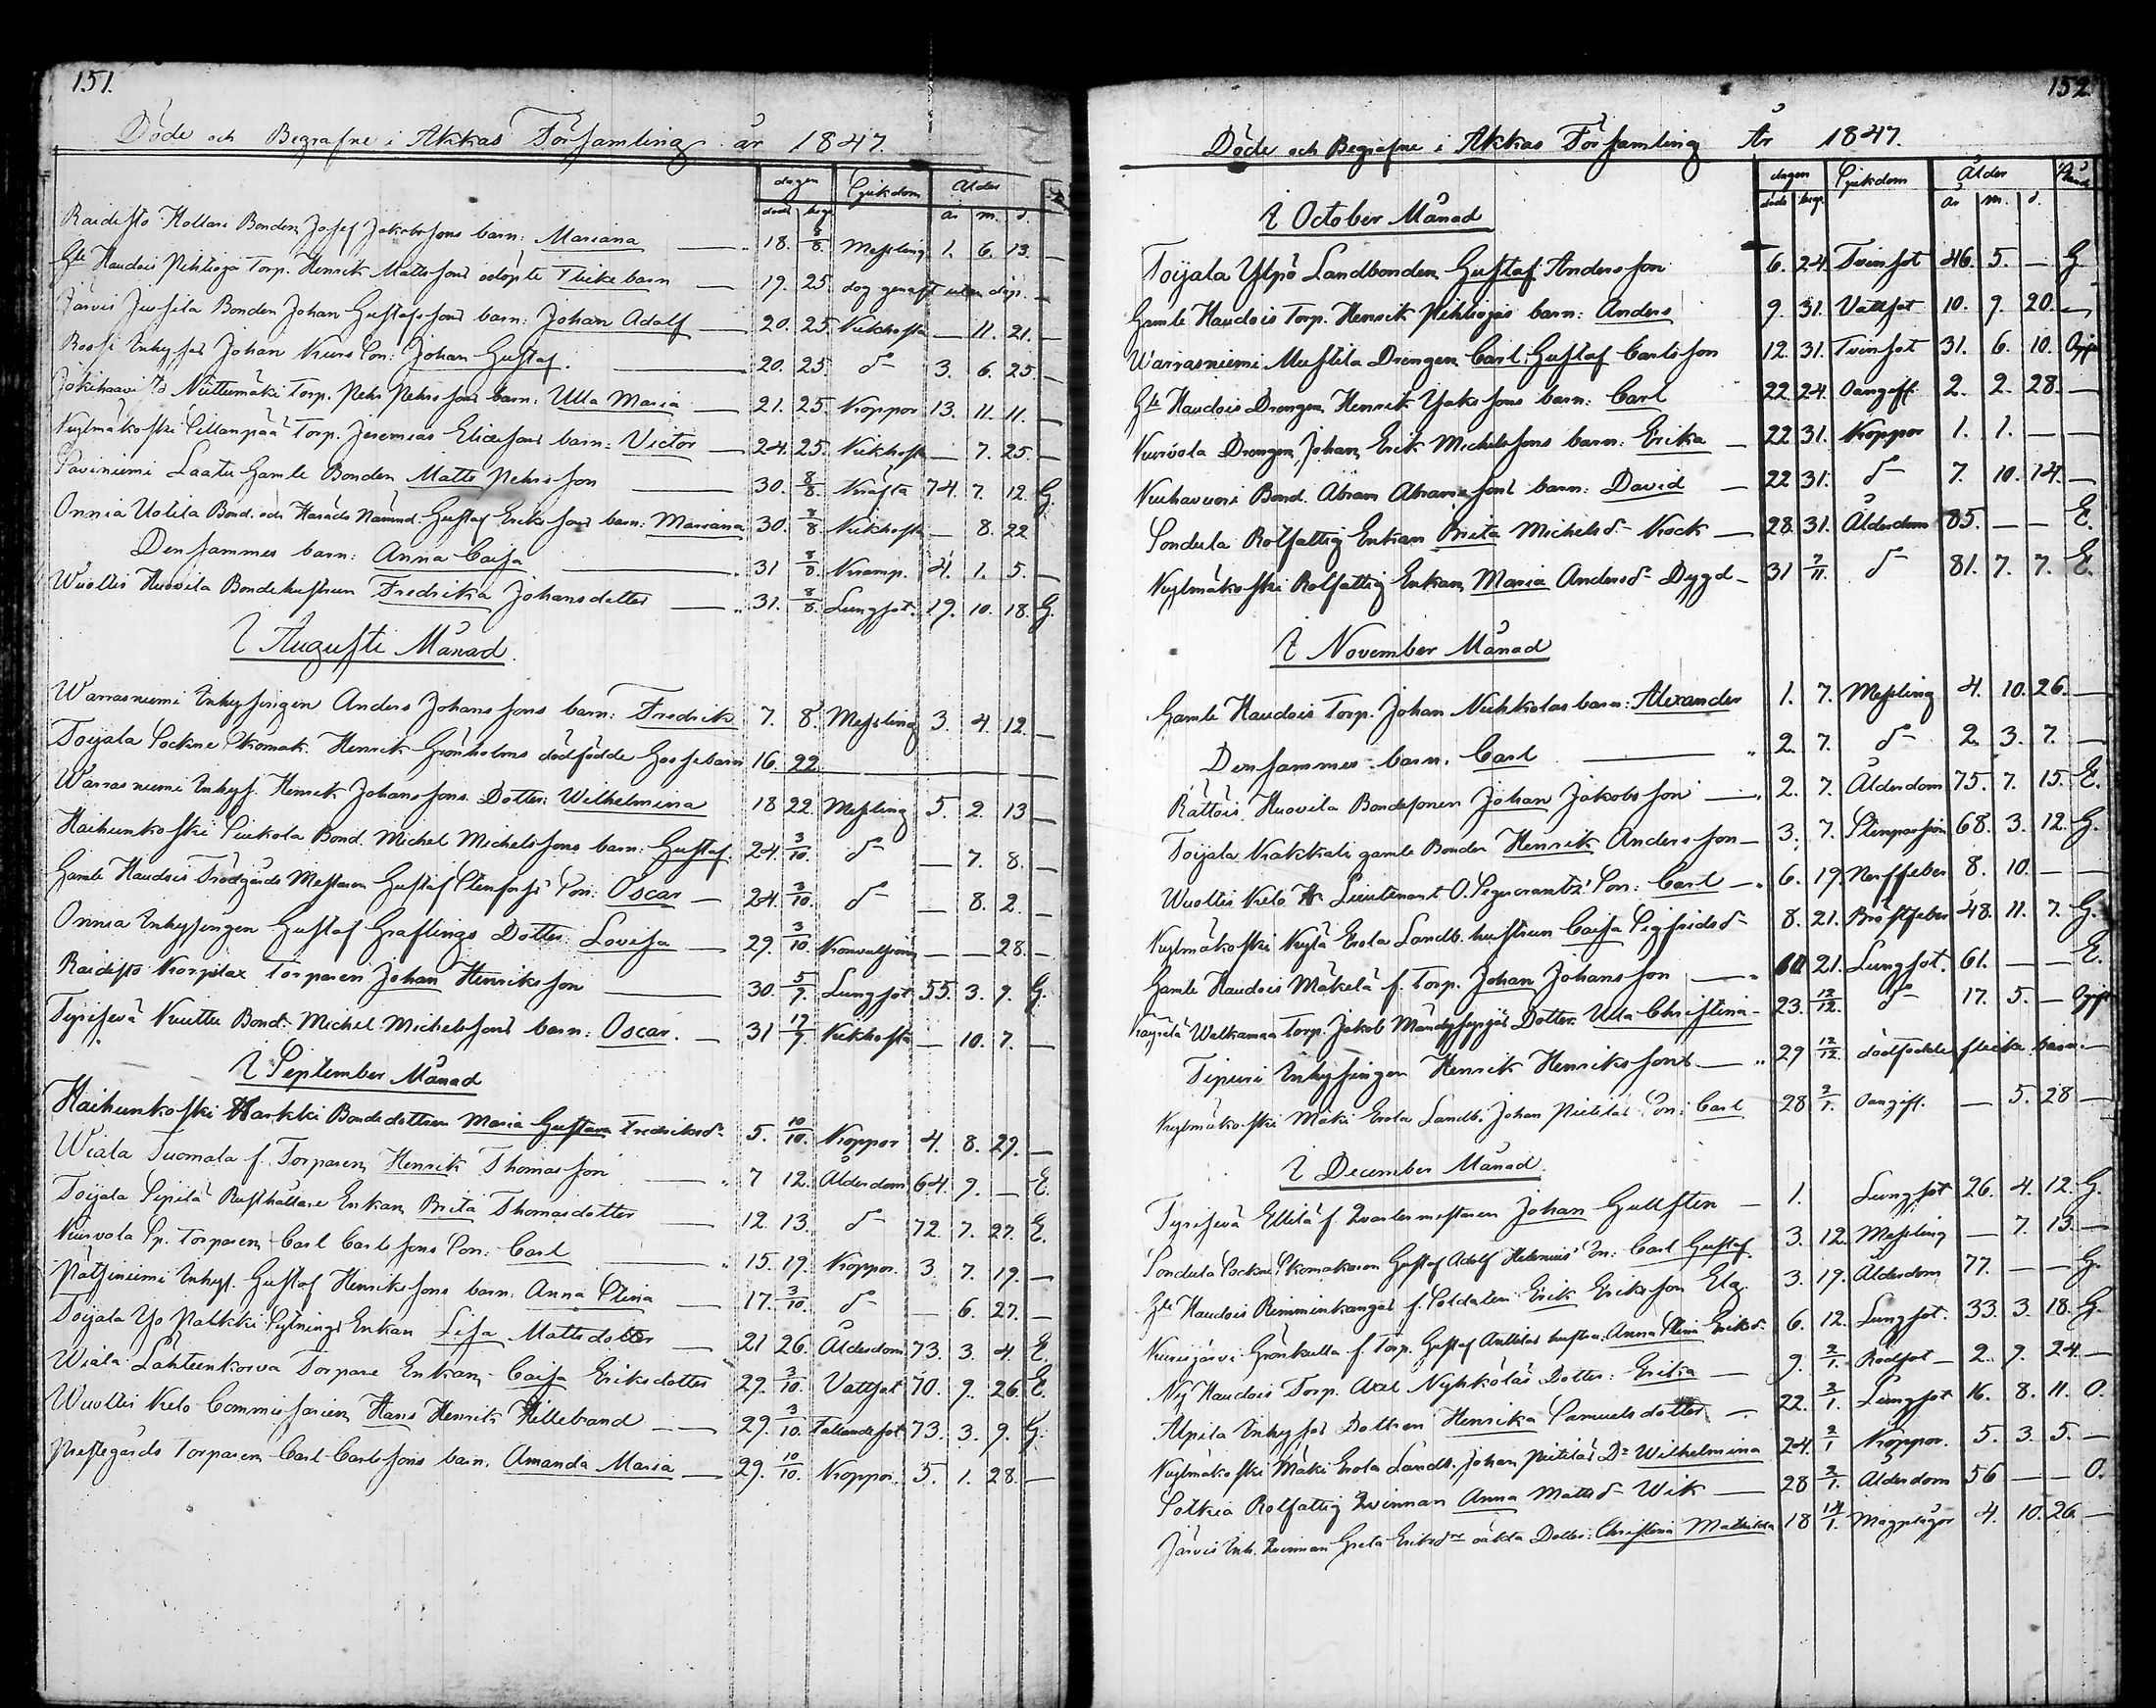 151.
Döde och Begrafne i Akkas Församling år 1847.
dagen Sjukdom Ålder
död begr år m. d.
Raidisto Hollari Bonden Josef Jakobssons barn: Mariana 18. 8/8. Messling 1. 6. 13. —
Gle Haudois Pihlioja Torp. Henrik Mattssons odöpte Flickebarn 19. 25. dog genast utan dop. —
Järvis Jussila Bonden Johan Gustafssons barn: Johan Adolf 20. 25. Kikhosta — 11. 21. —
Johan Kurs Son: Johan Gustaf. 20. 25. d:o 3. 6. 25. —
Niittumäki Torp. Pehr Pehrssons barn: Ulla Maria 21. 25. Koppor 13. 11. 11. —
Kylmäkoski Sillanpää Torp. Jeremias Eliæssons barn: Victor 24. 25. Kikhosta — 7. 25. —
Saviniemi Laatu Gamle Bonden Matts Pehrsson 30. 8/8. Kräfta 74. 7. 12. G.
Onnia Uotila Bond. och Härads Nämnd. Gustaf Erikssons barn: Mariana 30. 8/8. Kikhosta — 8. 22
Densammes barn: Anna Caisa 31 8/8. Kramp. 4. 1. 5. —
Wuoltis Huovila Bondehustrun Fredrika Johansdotter 31. 8/8. Lungsot. 19. 10. 18. G.
I Augusti Månad.
Warrasniemi Inhysingen Anders Johanssons barn: Fredrik 7. 8. Messling 3. 4. 12. —
Toijala Sockne Skomak. Henrik Grönholms dödfödde Gossebarn 16. 22.
Warrasniemi Inhys. Henrik Johanssons Dotter: Wilhelmina 18 22. Messling 5. 2. 13 —
Haihunkoski Siukola Bond. Michel Michelssons barn: Gustaf. 24. 3/10. d:o — 7. 8. —
Gamle Haudois Trädgårds Mästaren Gustaf Stenfors' Son: Oscar — 24. 3/10. d:o — 8. 2. —
Onnia Inhysingen Gustaf Graftings Dotter: Lovisa — 29. 3/10. Konvulsion — — 28. —
Raidisto Korpilax Torparen Johan Henriksson 30. 5/9. Lungsot 55. 3. 9. G.
Tyrisevä Knuttu Bond: Michel Michelssons barn: Oscar. — 31 19/9. Kikhosta — 10. 7. —
I September Månad
Haihunkoski Harkki Bondedottren Maria Gustava Fredriksd:r 5. 10/10. Koppor 4. 8. 29. —
Wiala Tuomala f. Torparen Henrik Thomasson 7 12. Ålderdom 64. 9. — E.
Toijala Sipilä Rusthållare Enkan Brita Thomasdotter 12. 13. d:o 72. 7. 27. E.
Kurvola Sp. Torparen Carl Carlssons Son: Carl 15. 19. Koppor. 3. 7. 19. —
Pätsiniemi Inhys. Gustaf Henrikssons barn: Anna Stina 17. 3/10. d:o — 6. 27. —
Toijala Yö Palkki Sytnings Enkan Lisa Mattsdotter 21 26. Ålderdom 73. 3. 4. E.
Wiala Lahteenkorva Torpare Enkan Caisa Eriksdotter 29. 3/10. Vattsot 70. 9. 26. E.
Wuoltis Kelo Commissarien Hans Henrik Hillebrand 29. 3/10. 73. 3. 9. G.
Prestegårds Torparen Carl Carlssons barn. Amanda Maria — 29. 10/10. Koppor. 5. 1. 28. —
152.
Döde och Begrafne i Akkas Församling År 1847.
dagen Sjukdom Ålder
död begr. år m. d.
I October Månad
Toijala Ylpö Landbonden Gustaf Andersson 6. 24. Tvinsot 46. 5. — G.
Gamle Haudois Torp. Henrik Pihliojas barn: Anders 9. 31. Vattsot 10. 9. 20. —
Warrasniemi Mustila Drengen Carl Gustaf Carlsson 12. 31. Tvinsot 31. 6. 10. Ogift
Gle Haudois Drengen Henrik Jakssons barn: Carl 22 24. Oangifl. 2. 2. 28. —
Kurvola Drengen Johan Erik Michelssons barn: Erika — 22 31. Koppor 1. 1. — —
Kuhavuori Bond. Abram Abramssons barn: David — 22 31. d:o 7. 10. 14. —
Sondula Rolfattig Enkan Brita Michelsd:r Kock — 28. 31. Ålderdom 85. — — E.
Kylmäkoski Rolfattig Enkan Maria Andersd:r Dygd — 31 7/11. d:o 81. 7. 7. E.
I November Månad
Gamle Haudois Torp. Johan Nuhkolas barn: Alexander 1. 7. Messling 4. 10. 26. —
Densammes barn. Carl 2. 7. d:o 2. 3. 7. —
Rättöis Huovila Bondesonen Johan Jakobsson — 2. 7. Ålderdom 75. 7. 15. E.
Toijala Nakkali gamle Bonden Henrik Andersson — 3. 7. Stenpassion 68. 3. 12. G.
Wuoltis Kelo Hr Lieutenant O. Segercrantz' Son: Carl — 6. 19. Nerffeber 8. 10. — —
Kylmäkoski Kylä Erola Landb. hustrun Caisa Sigfridsd:r 8. 21. Bröstfeber 48. 11. 7. G.
Gamle Haudois Mäkelä f. Torp. Johan Johansson — 21. Lungsot. 61. — — E.
Walkaman Torp. Jakob Dotter: Ulla Christina — 23. 12/12. d:o 17. 5. — Ogift
Sipuri Inhysingen Henrik Henrikssons — 29 12/12. dödfödde flicke barn. —
Kylmäkoski Mäki Erola Landb. Johan Pietiläs Son: Carl 28 2/1. Oangifl. — 5. 28 —
I December Månad.
Tyrisevä Ellilä f. Qvartermästaren Johan Gullsten — 1. Lungsot 26. 4. 12. G.
Sondula Sockne Skomakaren Gustaf Adolf Helenius' Son: Carl Gustaf. 3. 12. Messling — 7. 13. —
Gle Haudois Rimminkangas f. Soldaten Erik Eriksson Elg. 3. 19. Ålderdom 77. — — G.
Kurisjärvi Grönkulla f. Torp. Gustaf Anttilas hustru: Anna Stina Eriksd:r 6. 12. Lungsot. 33. 3. 18. G.
Ny Haudois Torp. Axel Nyhkäläs Dotter: Erika — 9. 2/1. Rödsot — 2. 9. 24. —
Alpila Inhyses Dottren Henrika Samuelsdotter — 22. 2/1. Lungsot 16. 8. 11. O.
Kylmäkoski Mäki Erola Landb. Johan Pietiläs D:r Wilhelmina 24. 2/1 Koppor. 5. 3. 5. —
Sotkia Rolfattig Qvinnan Anna Mattsd:r Wik — 28 2/1. Ålderdom 56 — — O.
Järvis Inh. Qvinnan Greta Eriksd:rs oäkta Dotter: Christina Mathilda 18 14/1. Magplågor 4. 10. 26. —